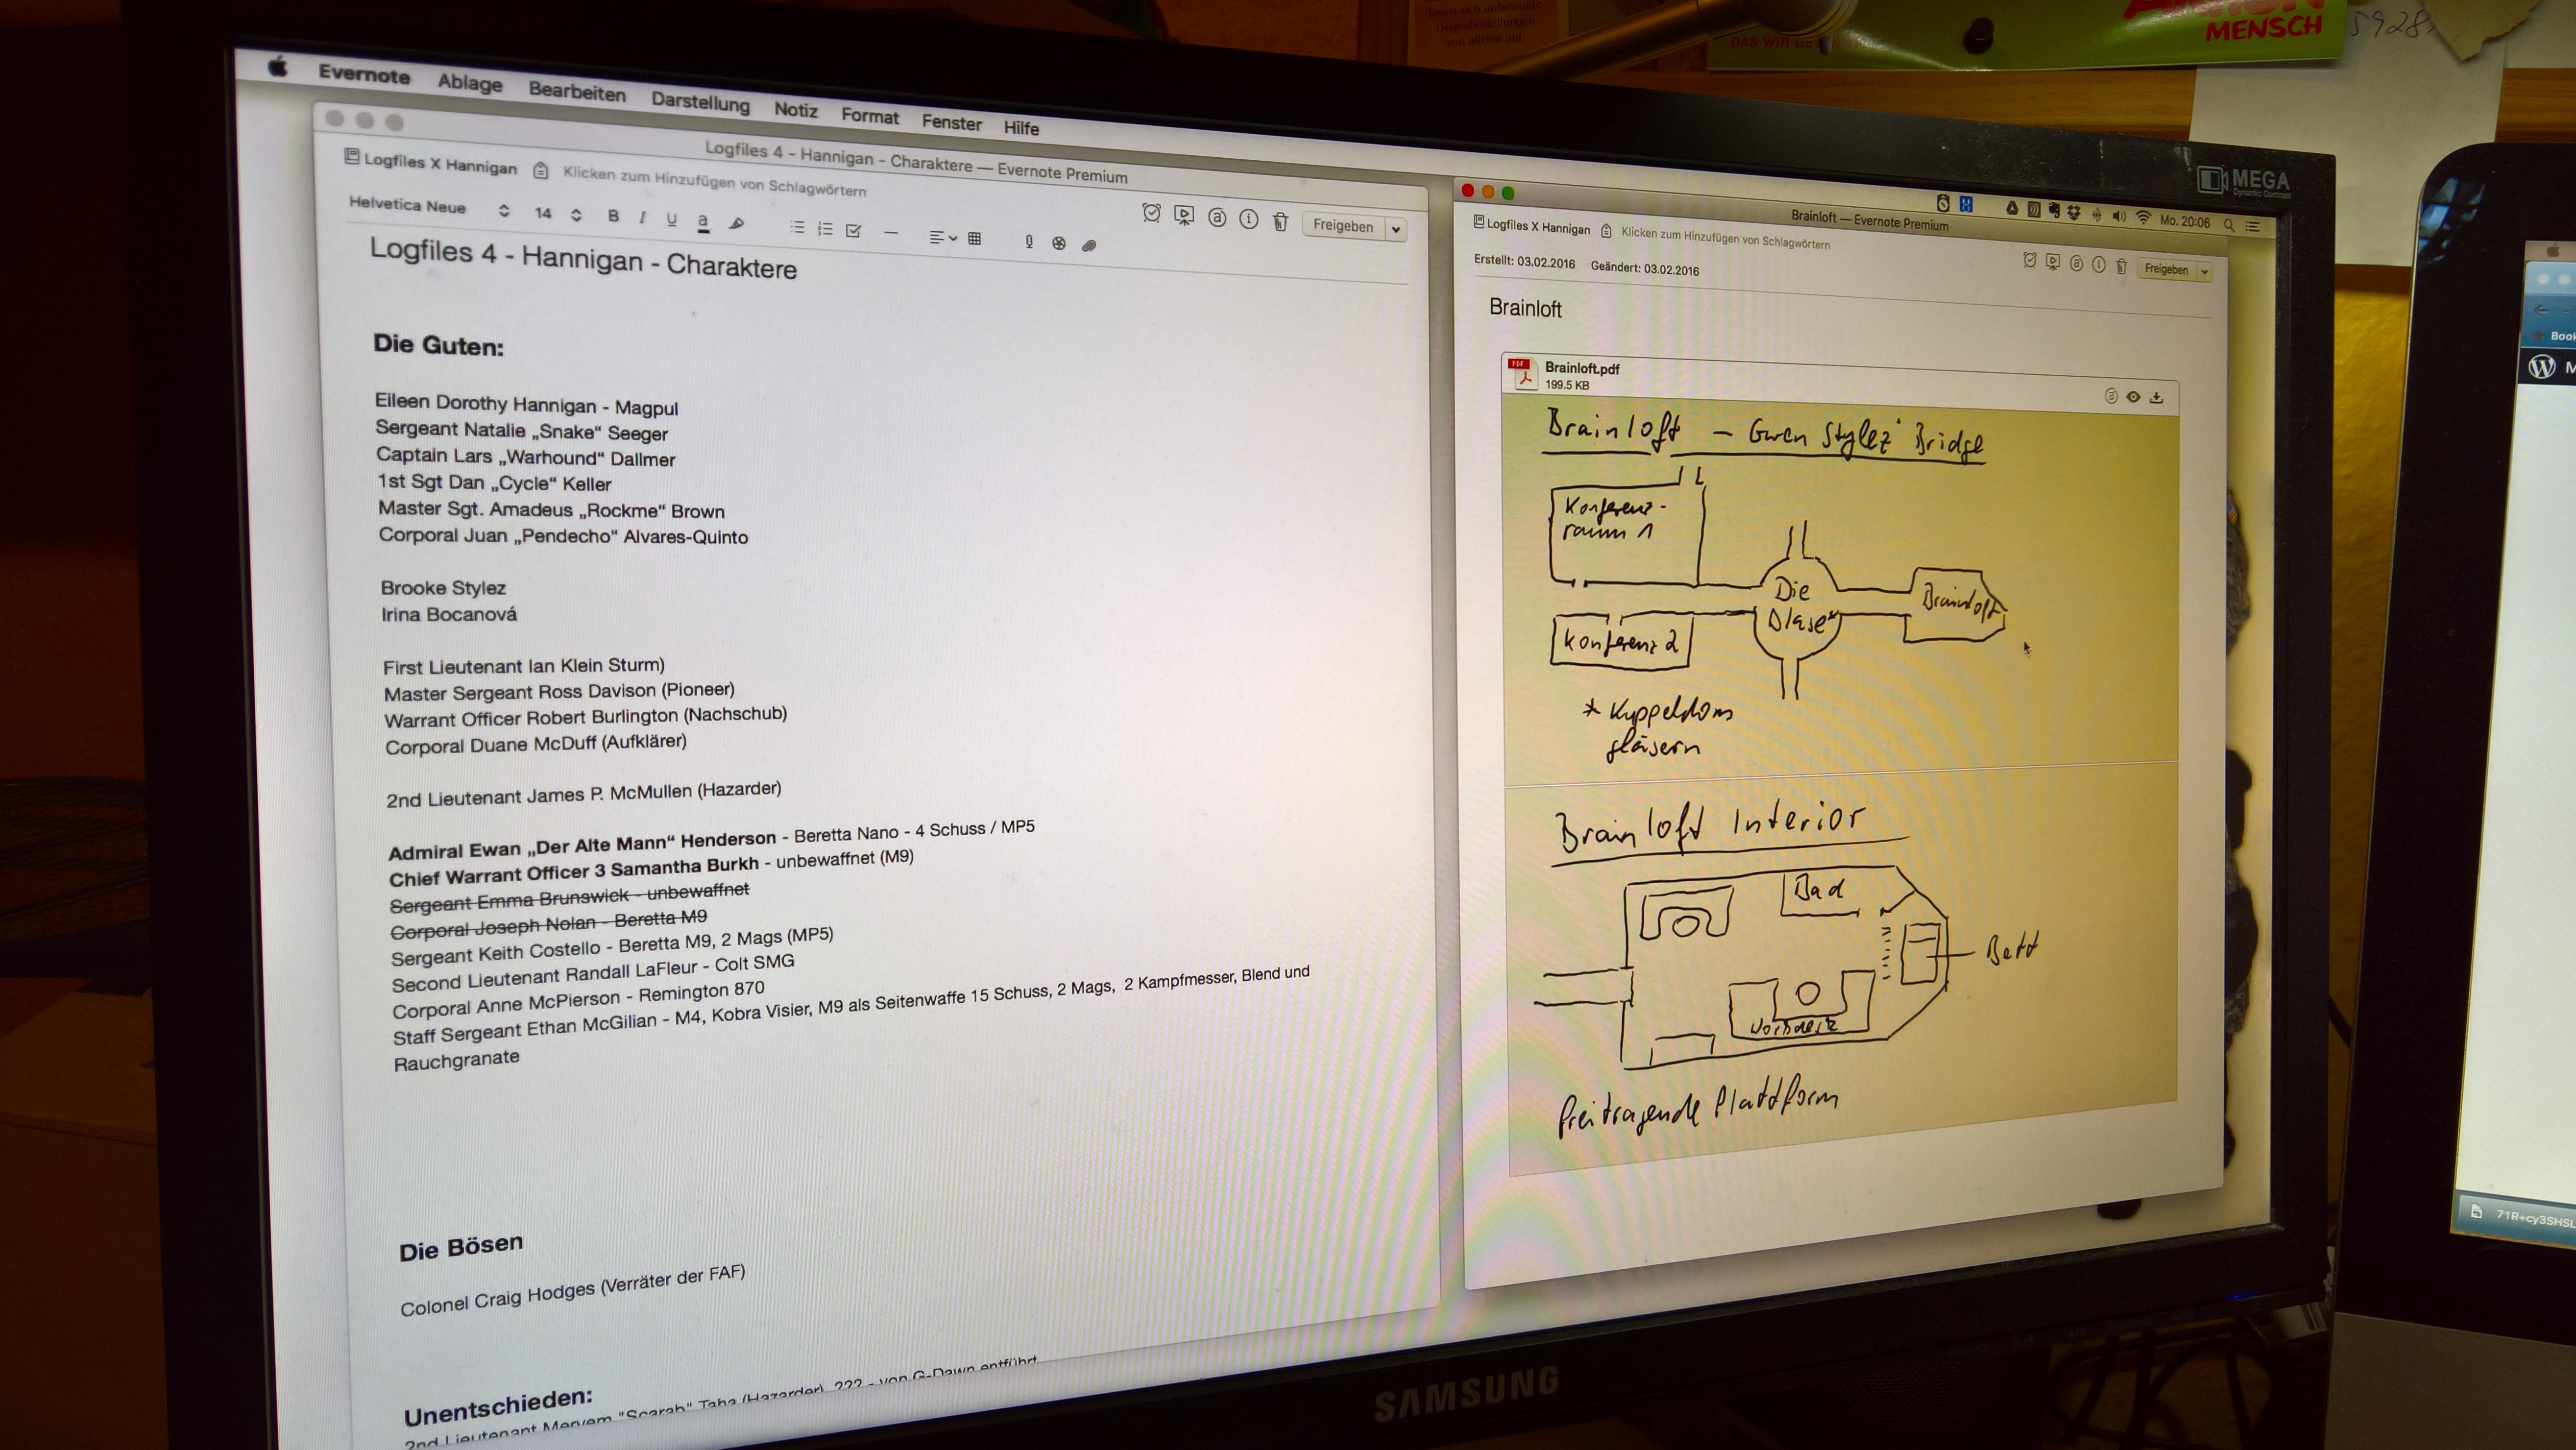 lösen sich unbewußte
Gegenbestellungen
von alleine auf.
DAS WIR
MENSCH
5928
MEGA
Dynamic Contrast
Evernote Ablage Bearbeiten Darstellung Notiz Format Fenster Hilfe
Mo. 20:06
Logfiles 4 - Hannigan - Charaktere — Evernote Premium
Logfiles X Hannigan Klicken zum Hinzufügen von Schlagwörtern
Helvetica Neue 14 B I U a Freigeben
Logfiles 4 - Hannigan - Charaktere
Die Guten:
Eileen Dorothy Hannigan - Magpul
Sergeant Natalie „Snake“ Seeger
Captain Lars „Warhound“ Dallmer
1st Sgt Dan „Cycle“ Keller
Master Sgt. Amadeus „Rockme“ Brown
Corporal Juan „Pendecho“ Alvares-Quinto
Brooke Stylez
Irina Bocanová
First Lieutenant Ian Klein Sturm)
Master Sergeant Ross Davison (Pioneer)
Warrant Officer Robert Burlington (Nachschub)
Corporal Duane McDuff (Aufklärer)
2nd Lieutenant James P. McMullen (Hazarder)
Admiral Ewan „Der Alte Mann“ Henderson - Beretta Nano - 4 Schuss / MP5
Chief Warrant Officer 3 Samantha Burkh - unbewaffnet (M9)
Sergeant Emma Brunswick - unbewaffnet
Corporal Joseph Nolan - Beretta M9
Sergeant Keith Costello - Beretta M9, 2 Mags (MP5)
Second Lieutenant Randall LaFleur - Colt SMG
Corporal Anne McPierson - Remington 870
Staff Sergeant Ethan McGilian - M4, Kobra Visier, M9 als Seitenwaffe 15 Schuss, 2 Mags, 2 Kampfmesser, Blend und
Rauchgranate
Die Bösen
Colonel Craig Hodges (Verräter der FAF)
Unentschieden:
2nd Lieutenant Meryem "Scarab" Taha (Hazarder) ??? - von G-Dawn entführt
Brainloft — Evernote Premium
Logfiles X Hannigan Klicken zum Hinzufügen von Schlagwörtern
Erstellt: 03.02.2016 Geändert: 03.02.2016 Freigeben
Brainloft
PDF
Brainloft.pdf
199.5 KB
Brainloft - Gwen Stylez' Bridge
Konferenz-
raum 1
Die
Blase*
Brainloft
Konferenz 2
* Kuppeldom
gläsern
Brainloft Interior
Bad
Bett
freitragende Plattform
SAMSUNG
Book
M
71R+cy3SHSL